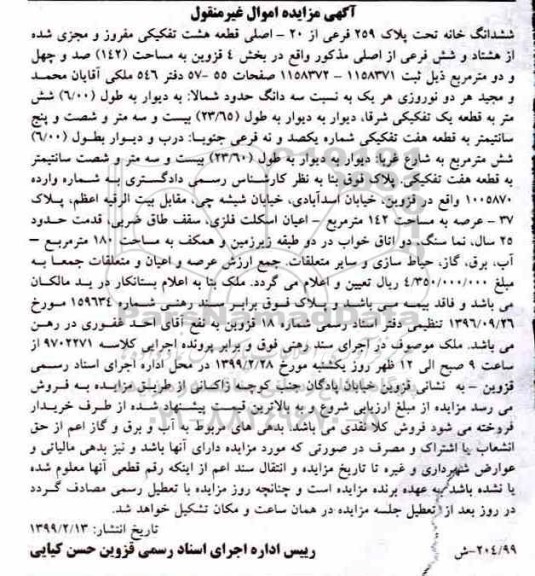 آگهی مزایده اموال غیرمنقول
ششدانگ خانه تحت پلاک ۲۵۹ فرعی از ۲۰ - اصلی قطعه هشت تفکیکی مفروز و مجزی شده
از هشتاد و شش فرعی از اصلی مذکور واقع در بخش ۴ قزوین به مساحت (۱۴۲) صد و چهل
و دو مترمربع ذیل ثبت ۱۱۵۸۳۷۱ - ۱۱۵۸۳۷۲ صفحات ۵۵ -۵۷ دفتر ۵۴۶ ملکی آقایان محمد
و مجید هر دو نوروزی هر یک به نسبت سه دانگ حدود شمالا: به دیوار به طول (۶/۰۰) شش
متر به قطعه یک تفکیکی شرقا، دیوار به دیوار به طول (۲۳/۶۵) بیست و سه متر و شصت و پنج
سانتیمتر به قطعه هفت تفکیکی شماره یکصد و نه فرعی جنوبا: درب و دیوار بطول (۶/۰۰)
شش مترمربع به شارع غربا: دیوار به دیوار به طول (۲۳/۶۰) بیست و سه متر و شصت سانتیمتر
به قطعه هفت تفکیکی. پلاک فوق بنا به نظر کارشناس رسمی دادگستری به شماره وارده
۱۰۰۵۸۷۰ واقع در قزوین، خیابان اسدآبادی، خیابان شیشه چی، مقابل بیت الرقیه اعظم، پلاک
۳۷ - عرصه به مساحت ۱۴۲ مترمربع - اعیان اسکلت فلزی، سقف طاق ضربی، قدمت حدود
۲۵ سال، نما سنگ، دو اتاق خواب در دو طبقه زیرزمین و همکف به مساحت ۱۸۰ مترمربع -
آب، برق، گاز، حیاط سازی و سایر متعلقات. جمع ارزش عرصه و اعیان و متعلقات جمعا به
مبلغ ۴/۳۵۰/۰۰۰/۰۰۰ ریال تعیین و اعلام می گردد. ملک بنا به اعلام بستانکار در ید مالکان
می باشد و فاقد بیمه می باشد و پلاک فوق برابر سند رهنی شماره ۱۵۹۶۳۴ مورخ
۱۳۹۶/۰۹/۲۶ تنظیمی دفتر اسناد رسمی شماره ۱۸ قزوین به نفع آقای احد غفوری در رهن
می باشد. ملک موصوف در اجرای سند رهنی فوق و برابر پرونده اجرایی کلاسه ۹۷۰۲۲۷۱ از
ساعت ۹ صبح الی ۱۲ ظهر روز یکشنبه مورخ ۱۳۹۹/۲/۲۸ در محل اداره اجرای اسناد رسمی
قزوین - به نشانی قزوین خیابان پادگان جنب کوچه زاکانی از طریق مزایده به فروش
می رسد مزایده از مبلغ ارزیابی شروع و به بالاترین قیمت پیشنهاد شده از طرف خریدار
فروخته می شود فروش کلا نقدی می باشد. بدهی های مربوط به آب و برق و گاز اعم از حق
انشعاب یا اشتراک و مصرف در صورتی که مورد مزایده دارای آنها باشد و نیز بدهی مالیاتی و
عوارض شهرداری و غیره تا تاریخ مزایده و انتقال سند اعم از اینکه رقم قطعی آنها معلوم شده
یا نشده باشد به عهده برنده مزایده است و چنانچه روز مزایده با تعطیل رسمی مصادف گردد
در روز بعد از تعطیل جلسه مزایده در همان ساعت و مکان تشکیل خواهد شد.
تاریخ انتشار: ۱۳۹۹/۲/۱۳
۲۰۴/۹۹-ش رییس اداره اجرای اسناد رسمی قزوین حسن کیایی